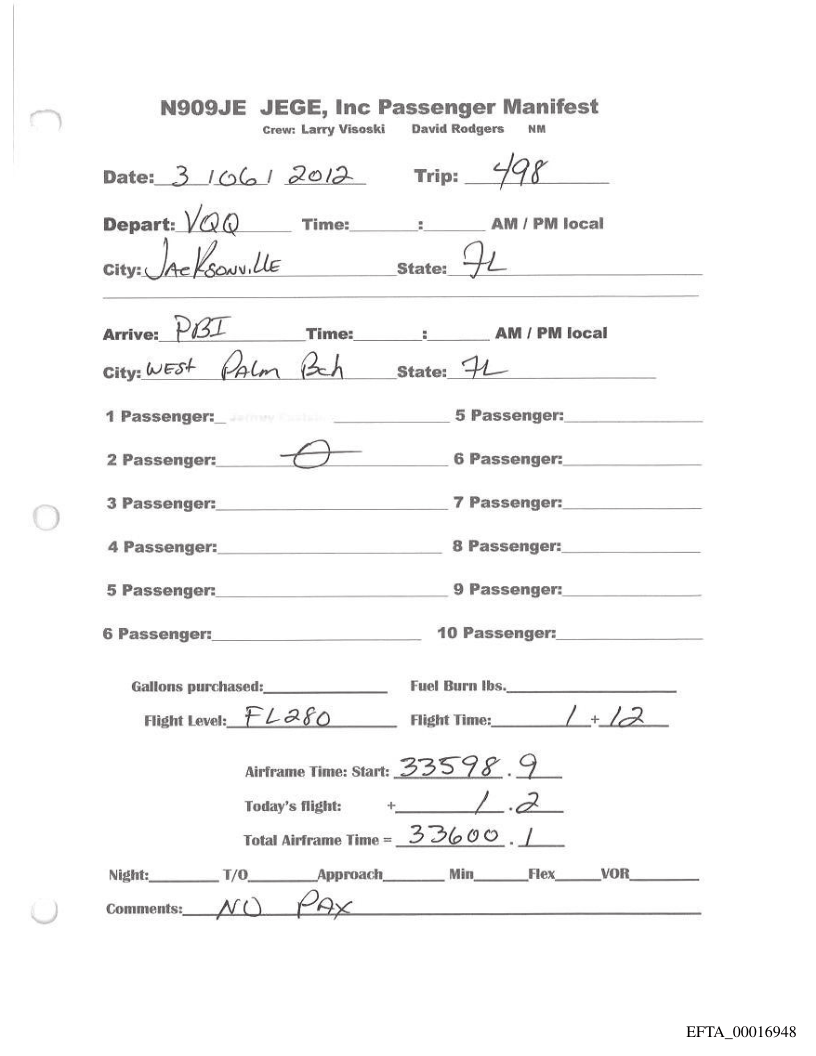 N909JE JEGE, Inc Passenger Manifest
Crew: Larry Visoski David Rodgers NM
Date: 3 / 06 / 2012 Trip: 498
Depart: VQQ Time: : AM / PM local
City: Jacksonville State: FL
Arrive: PBI Time: : AM / PM local
City: West Palm Bch State: FL
1 Passenger: 5 Passenger:
2 Passenger: 6 Passenger:
3 Passenger: 7 Passenger:
4 Passenger: 8 Passenger:
5 Passenger: 9 Passenger:
6 Passenger: 10 Passenger:
Gallons purchased: Fuel Burn lbs.
Flight Level: FL280 Flight Time: 1 + 12
Airframe Time: Start: 33598 . 9
Today's flight: + 1 . 2
Total Airframe Time = 33600 . 1
Night: T/O Approach Min Flex VOR
Comments: NO PAX
EFTA_00016948